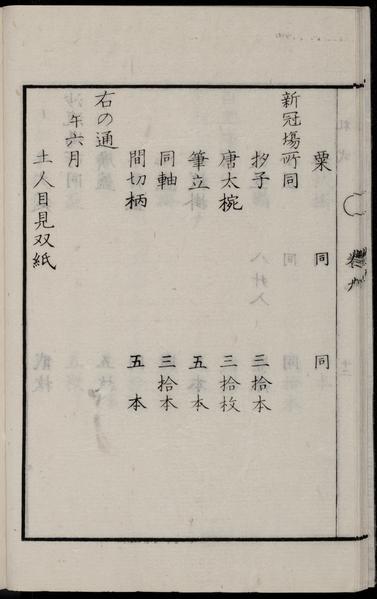 粟　同　同
新冠場所同
杓子　三拾本
唐太椀　三拾枚
筆立　五本
同軸　三拾本
間切柄　五本
右の通
午六月
土人目見双紙